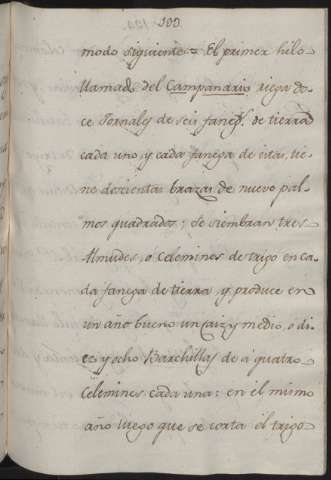 100.
modo siguiente = El primer hilo
llamado del Campanario riega do-
ce Jornales de seis faneg.s de tierra
cada uno, y cada fanega de estas tie-
ne doscientas brazas de nueve pal-
mos quadrados; se siembran tres
Almudes, ó Celemines de trigo en ca-
da fanega de tierra, y produce en
un año bueno un caiz y medio, o di-
ez y ocho Barchillas de á quatro
Celemines cada una: en el mismo
año luego que se corta el trigo